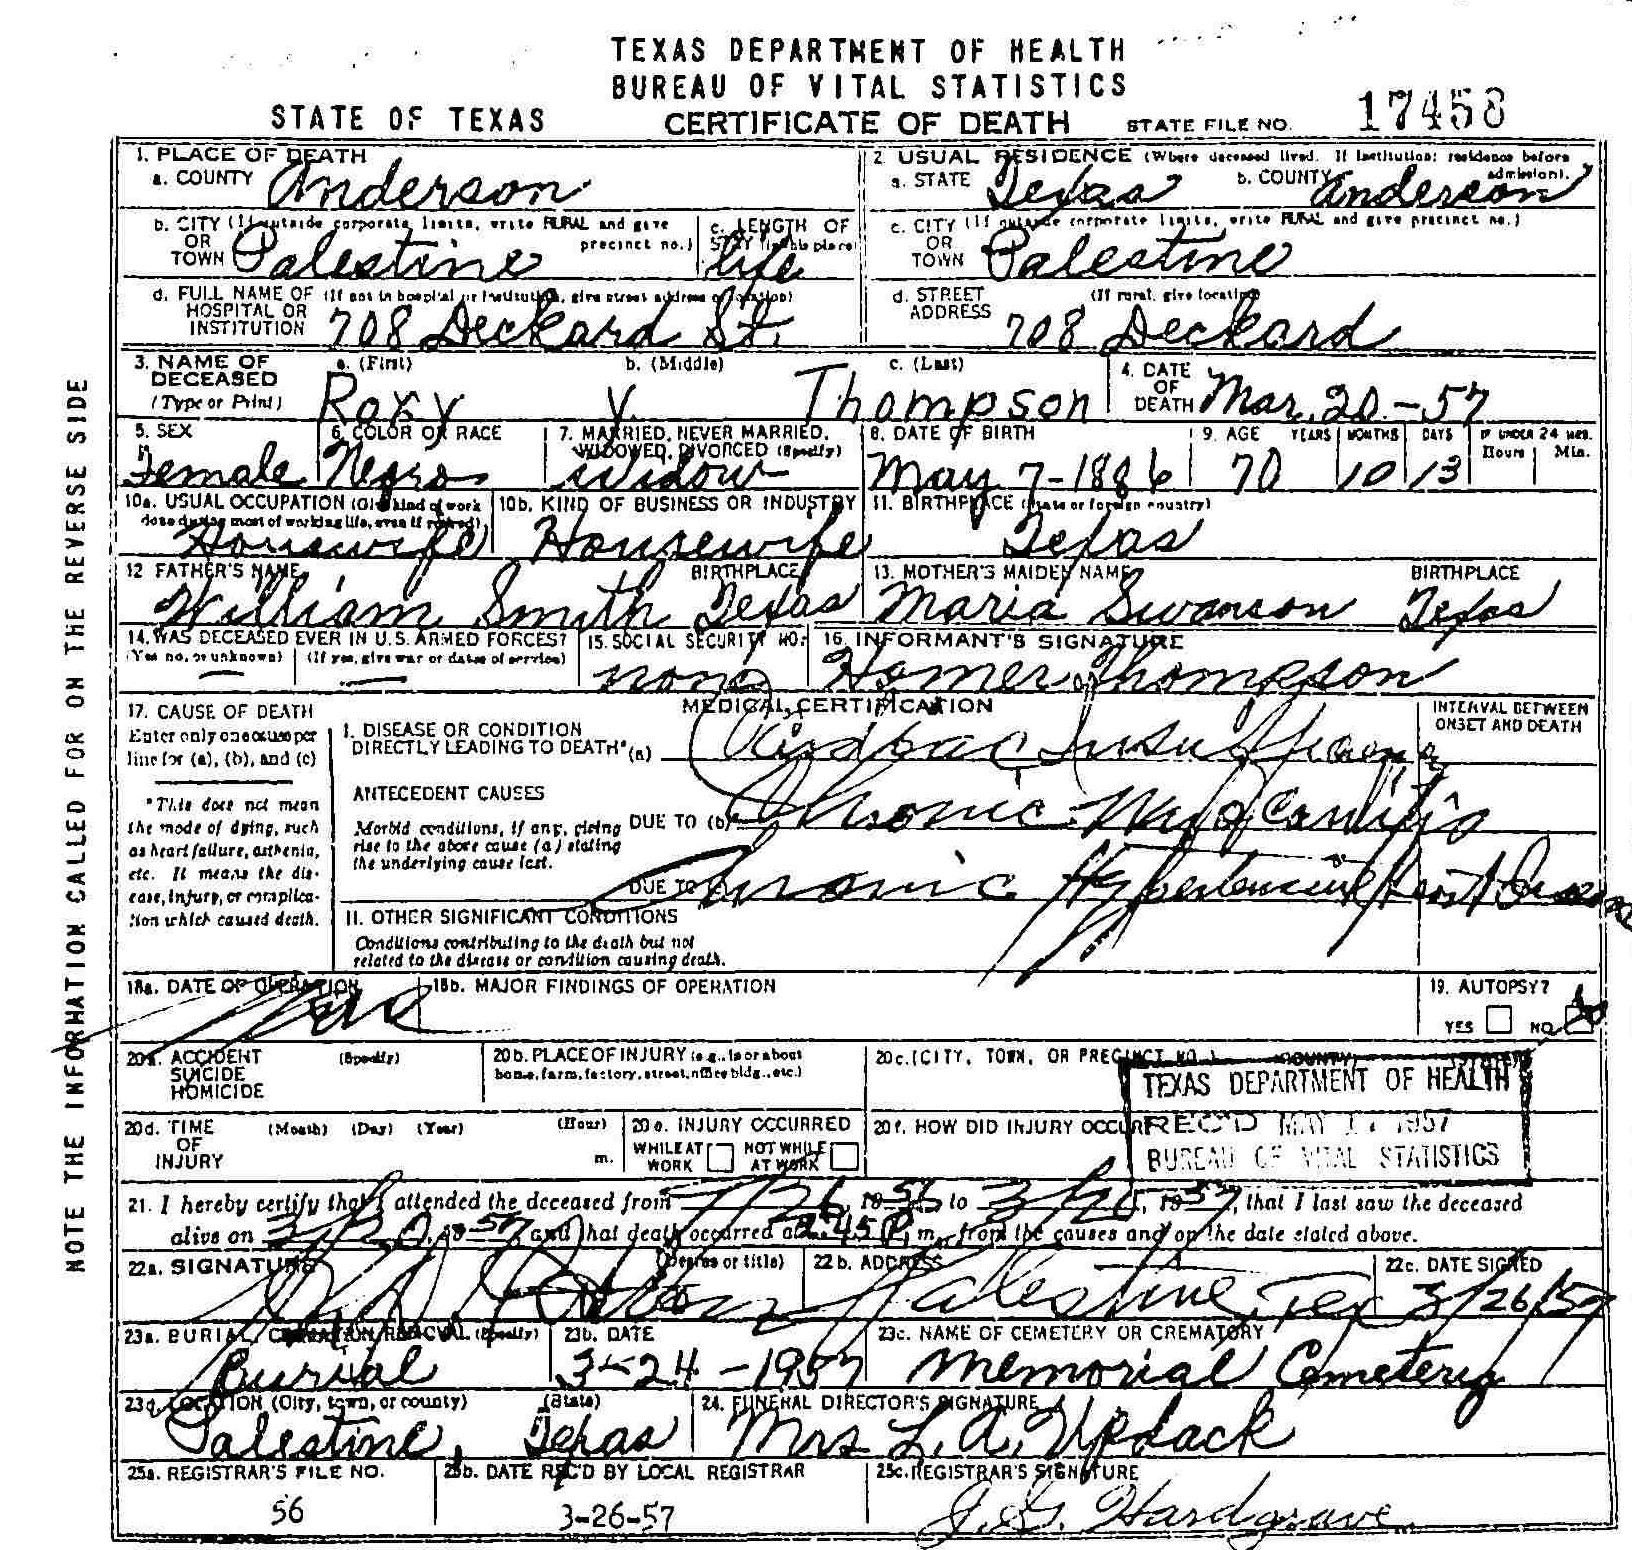 TEXAS DEPARTMENT OF HEALTH
BUREAU OF VITAL STATISTICS
STATE OF TEXAS CERTIFICATE OF DEATH STATE FILE NO. 17458
1. PLACE OF DEATH
a. COUNTY Anderson
2 USUAL RESIDENCE (Where deceased lived. If institution: residence before admission).
a. STATE Texas b. COUNTY Anderson
b. CITY (If outside corporate limits, write RURAL and give precinct no.) OR TOWN Palestine
c. LENGTH OF STAY (in this place) life
c. CITY (If outside corporate limits, write RURAL and give precinct no.) OR TOWN Palestine
d. FULL NAME OF HOSPITAL OR INSTITUTION (If not in hospital or institution, give street address or location) 708 Deckard St.
d. STREET ADDRESS (If rural, give location) 708 Deckard
3. NAME OF DECEASED (Type or Print) a. (First) Roxy b. (Middle) Y. c. (Last) Thompson
4. DATE OF DEATH Mar. 20-57
5. SEX Female
6. COLOR OR RACE Negro
7. MARRIED, NEVER MARRIED, WIDOWED, DIVORCED (Specify) Widow
8. DATE OF BIRTH May 7-1886
9. AGE YEARS 70 MONTHS 10 DAYS 13 IF UNDER 24 HRS. Hours Min.
10a. USUAL OCCUPATION (Give kind of work done during most of working life, even if retired) Housewife
10b. KIND OF BUSINESS OR INDUSTRY Housewife
11. BIRTHPLACE (State or foreign country) Texas
12 FATHER'S NAME William Smith BIRTHPLACE Texas
13. MOTHER'S MAIDEN NAME Maria Swanson BIRTHPLACE Texas
14. WAS DECEASED EVER IN U.S. ARMED FORCES?
(Yes no, or unknown) — (If yes, give war or dates of service) —
15. SOCIAL SECURITY NO. none
16. INFORMANT'S SIGNATURE Homer Thompson
MEDICAL CERTIFICATION
INTERVAL BETWEEN ONSET AND DEATH
17. CAUSE OF DEATH
Enter only one cause per line for (a), (b), and (c)
*This does not mean the mode of dying, such as heart failure, asthenia, etc. It means the disease, injury, or complication which caused death.
I. DISEASE OR CONDITION DIRECTLY LEADING TO DEATH* (a) Cardiac Insufficiency
ANTECEDENT CAUSES
Morbid conditions, if any, giving rise to the above cause (a) stating the underlying cause last.
DUE TO (b) Chronic Myocarditis
DUE TO (c) Chronic Hypertensive Heart Disease
II. OTHER SIGNIFICANT CONDITIONS
Conditions contributing to the death but not related to the disease or condition causing death.
18a. DATE OF OPERATION
18b. MAJOR FINDINGS OF OPERATION
19. AUTOPSY?
YES NO
20a. ACCIDENT SUICIDE HOMICIDE (Specify)
20b. PLACE OF INJURY (e.g., in or about home, farm, factory, street, office bldg., etc.)
20c. (CITY, TOWN, OR PRECINCT NO.) (COUNTY) (STATE)
TEXAS DEPARTMENT OF HEALTH
REC'D MAY 1957
BUREAU OF VITAL STATISTICS
20d. TIME OF INJURY (Month) (Day) (Year) (Hour) m.
20e. INJURY OCCURRED
WHILE AT WORK NOT WHILE AT WORK
20f. HOW DID INJURY OCCUR
21. I hereby certify that I attended the deceased from 7/26, 1956 to 3/20, 1957, that I last saw the deceased
alive on 3/20, 1957 and that death occurred at 2:45 P. m., from the causes and on the date stated above.
22a. SIGNATURE (Degree or title)
22b. ADDRESS Palestine, Tex
22c. DATE SIGNED 3/26/57
23a. BURIAL, CREMATION, REMOVAL (Specify) Burial
23b. DATE 3-24-1957
23c. NAME OF CEMETERY OR CREMATORY Memorial Cemetery
23d. LOCATION (City, town, or county) (State) Palestine, Texas
24. FUNERAL DIRECTOR'S SIGNATURE Mrs L. A. Updack
25a. REGISTRAR'S FILE NO. 56
25b. DATE REC'D BY LOCAL REGISTRAR 3-26-57
25c. REGISTRAR'S SIGNATURE J. G. Hardgrave
NOTE THE INFORMATION CALLED FOR ON THE REVERSE SIDE